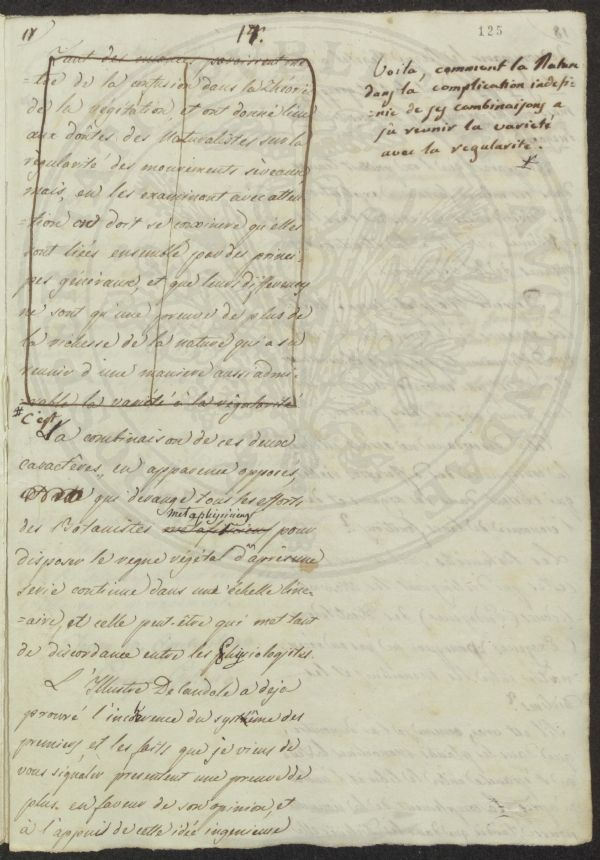 17.
125
Tant des nuances parvinrent me-
-tre de la confusion dans la théorie
de la végétation, et ont donné lieu
aux doûtes des Naturalistes sur la
régularité des mouvements sèveaux
mais, en les examinant avec atten
-tion on doit se convincre qu'elles
sont liées ensemble par des princi-
pes généraux, et que leurs differences
ne sont qu'une preuve des plus de
la richesse de la nature qui a su
reunir d'une maniere aussi admi-
-rable la varieté à la régularité
Voila, comment la Nature
dans la complication indefi-
-nie de ses combinaisons a
su reunir la varieté
avec la regularité.
# C'est
La combinaison de ces deux
caractères, en apparence opposés,
qui derange tous les efforts
des Botanistes metaphisiciens pour
disposer le regne végétal d'après une
serie continue dans une échelle liné-
-aire, et celle peut-être qui met tant
de discordance entre les phisiologistes.
L'Illustre Decandole a dejà
prouvé l'incoherence du système des
premiers et les faits que je viens de
vous signaler presentent une preuve de
plus en faveur de son opinion, et
à l'appui de cette idée ingenieuse